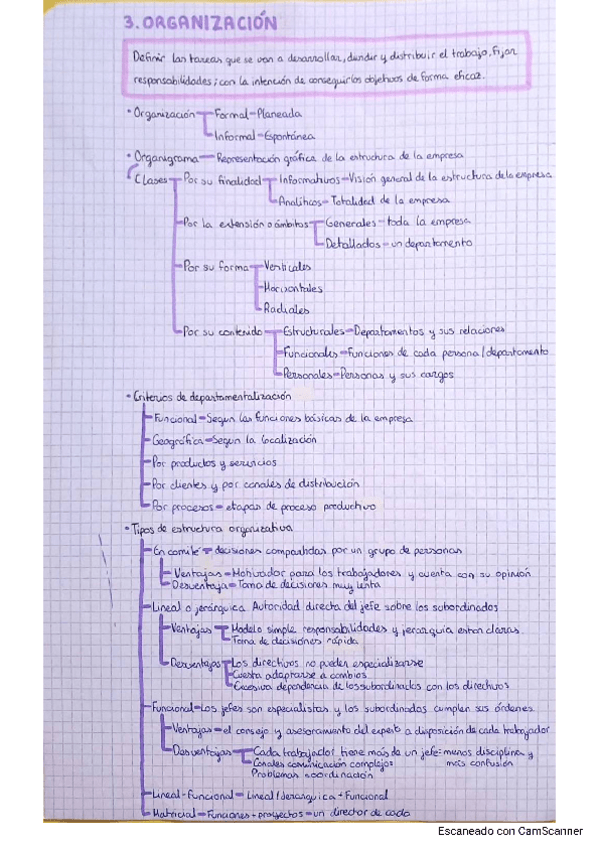 3. ORGANIZACIÓN
Definir las tareas que se van a desarrollar, dividir y distribuir el trabajo, fijar
responsabilidades; con la intención de conseguir los objetivos de forma eficaz.
• Organización Formal - Planeada
Informal - Espontánea
• Organigrama - Representación gráfica de la estructura de la empresa
Clases Por su finalidad Informativos - Visión general de la estructura de la empresa
Analíticos - Totalidad de la empresa
Por la extensión o ámbitos Generales - toda la empresa
Detallados - un departamento
Por su forma Verticales
Horizontales
Radiales
Por su contenido Estructurales - Departamentos y sus relaciones
Funcionales - Funciones de cada persona/departamento
Personales - Personas y sus cargos
• Criterios de departamentalización
Funcional - Según las funciones básicas de la empresa
Geográfica - Según la localización
Por productos y servicios
Por clientes y por canales de distribución
Por procesos - etapas de proceso productivo
• Tipos de estructura organizativa
En comité - decisiones compartidas por un grupo de personas
Ventajas - Motivador para los trabajadores y cuenta con su opinión
Desventaja - Toma de decisiones muy lenta
Lineal o jerárquica Autoridad directa del jefe sobre los subordinados
Ventajas Modelo simple responsabilidades y jerarquía estan claras
Toma de decisiones rápida
Desventajas Los directivos no pueden especializarse
Cuesta adaptarse a cambios
Excesiva dependencia de los subordinados con los directivos
Funcional - Los jefes son especialistas y los subordinados cumplen sus órdenes
Ventajas - el consejo y asesoramiento del experto a disposición de cada trabajador
Desventajas Cada trabajador tiene más de un jefe - menos disciplina y
Canales comunicación complejos más confusión
Problemas coordinación
Lineal - Funcional - Lineal/Jerarquica + Funcional
Matricial - Funciones + proyectos - un director de cada
Escaneado con CamScanner